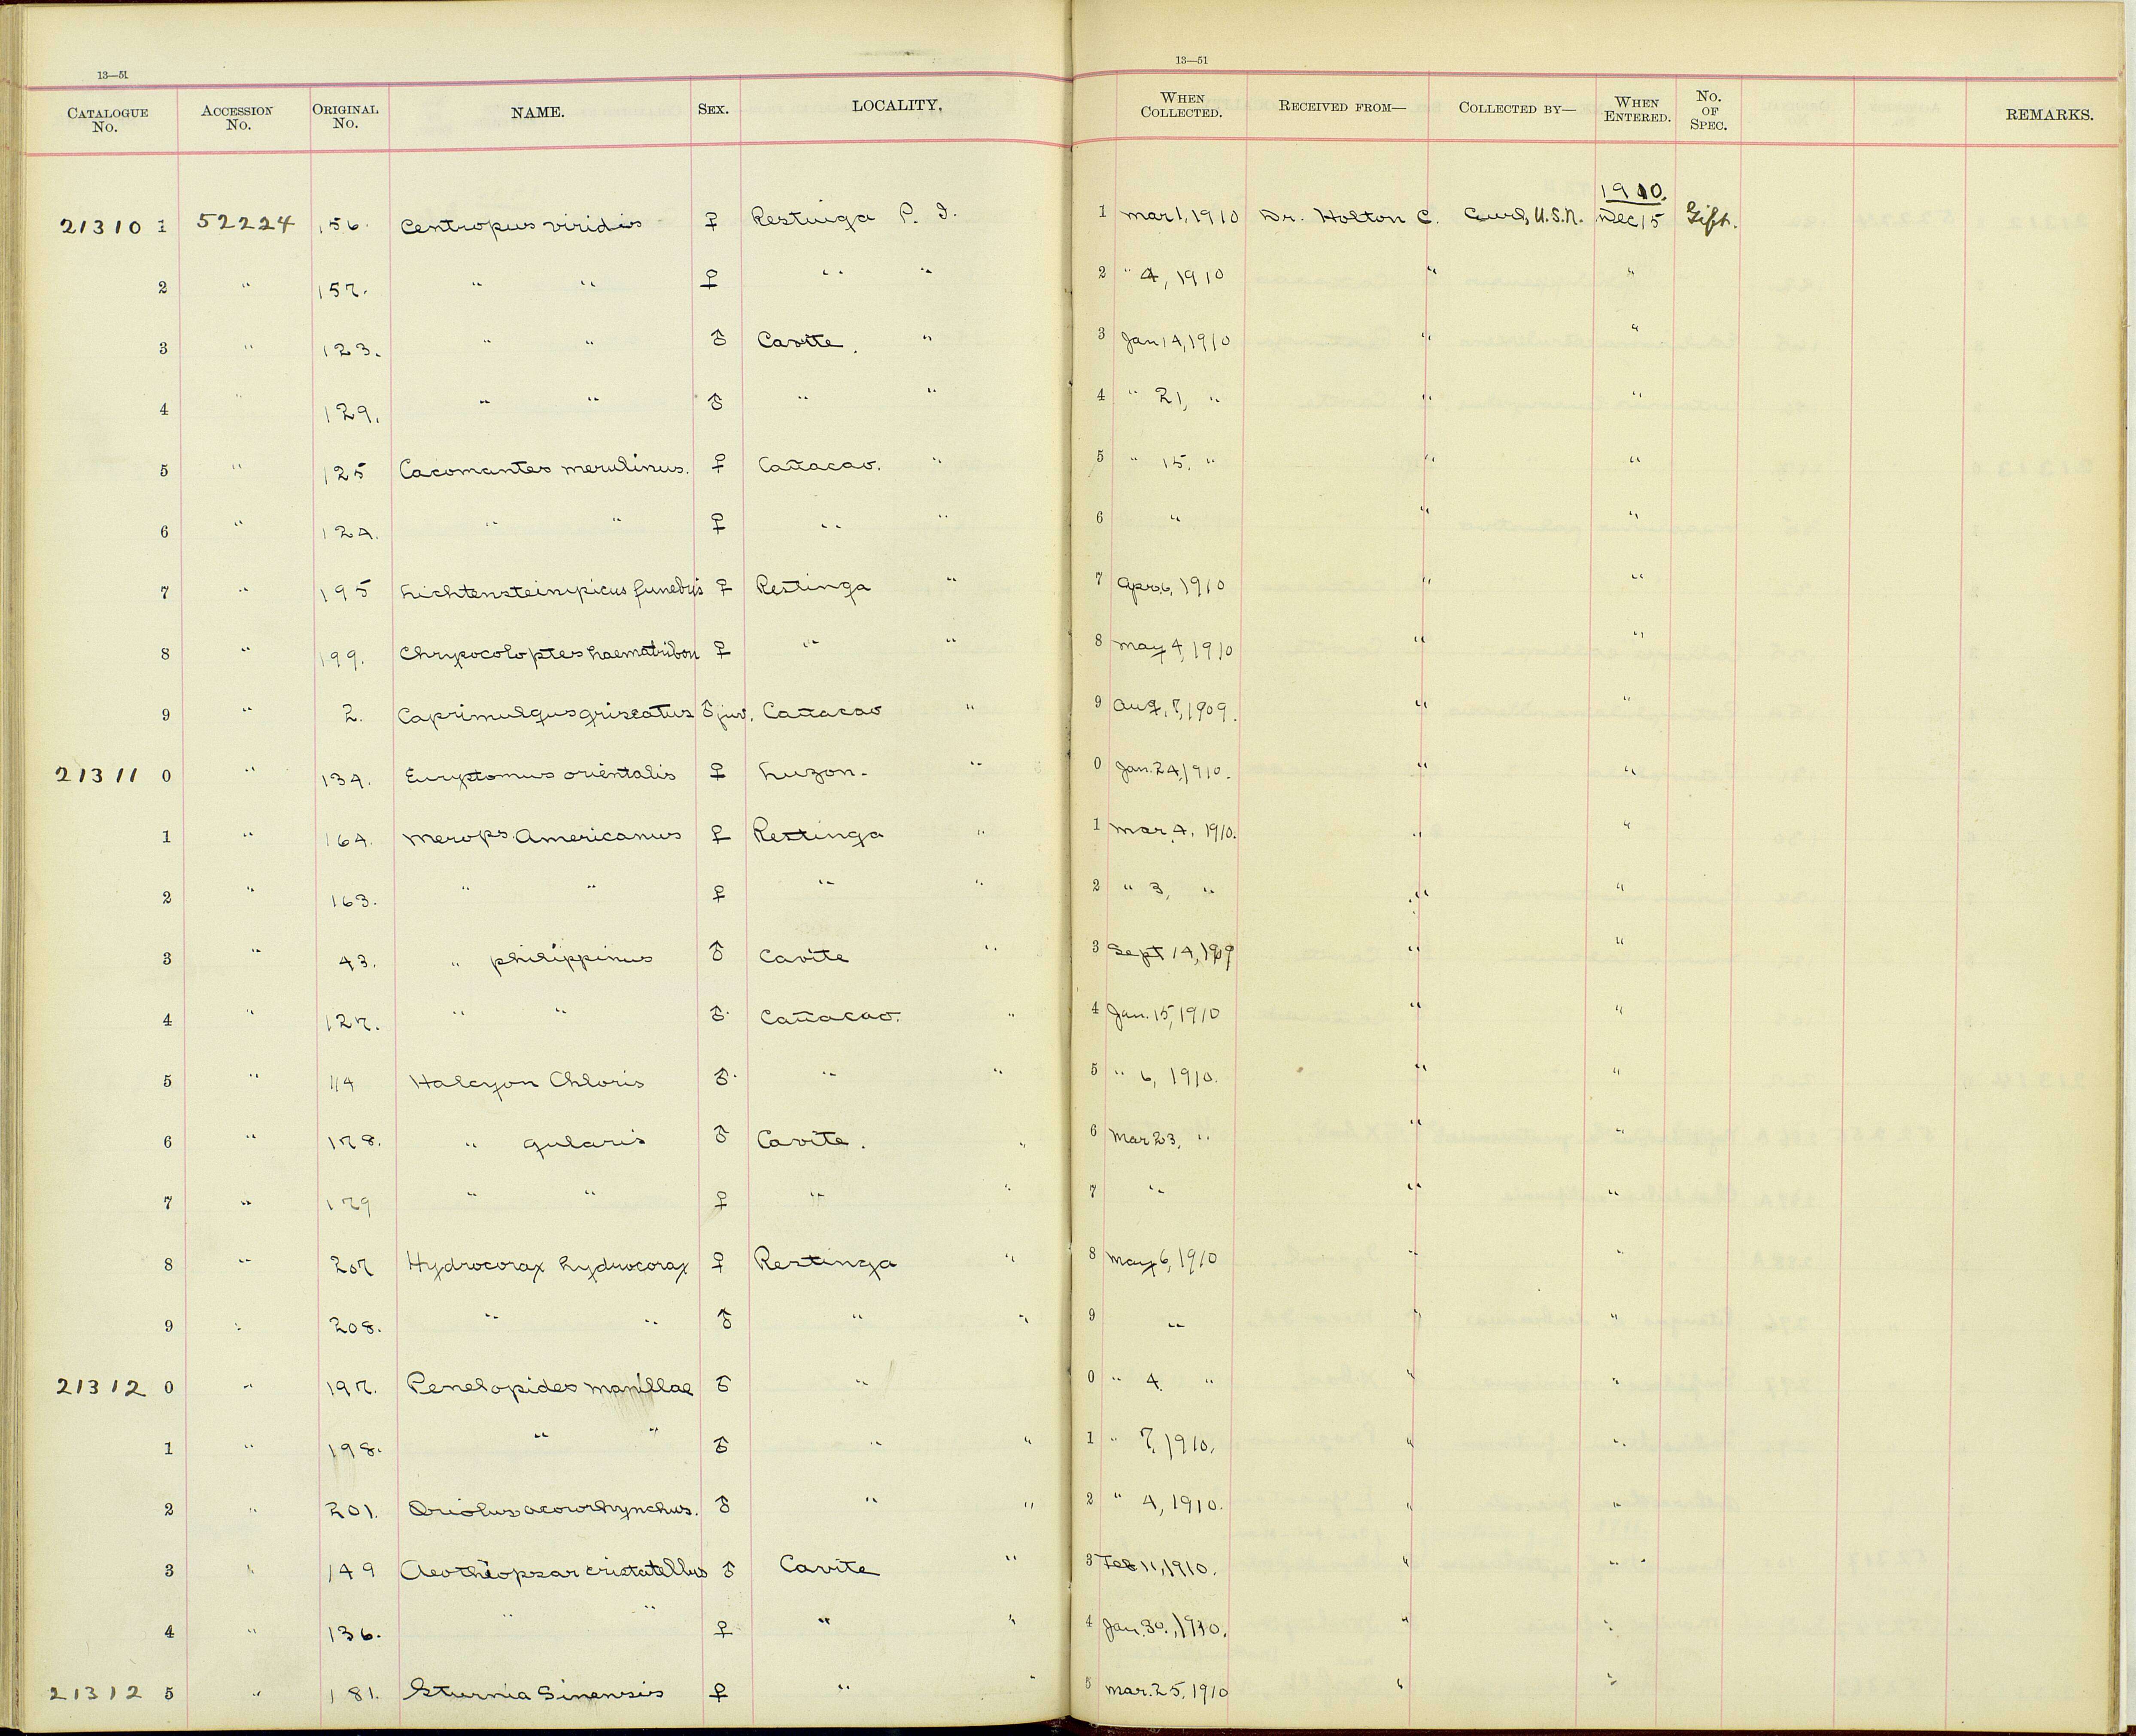 13—51
CATALOGUE No. ACCESSION No. ORIGINAL No. NAME. SEX. LOCALITY.
213101 52224 156. Centropus viridis ♀ Restinga P. I.
2 " 157. " " ♀ " "
3 " 123. " " ♂ Cavite. "
4 " 129. " " ♂ " "
5 " 125 Cacomantes merulinus. ♀ Cañacao. "
6 " 124. " " ♀ " "
7 " 195 Lichtensteinipicus funebris ♀ Restinga "
8 " 199. Chrysocoloptes haematribon ♀ " "
9 " 2. Caprimulgus griseatus ♂ juv. Cañacao "
21311 0 " 134. Eurystomus orientalis ♀ Luzon. "
1 " 164. Merops Americanus ♀ Restinga "
2 " 163. " " ♀ " "
3 " 43. " philippinus ♂ Cavite "
4 " 127. " " ♂. Cañacao. "
5 " 114 Halcyon Chloris ♂. " "
6 " 178. " gularis ♂ Cavite. "
7 " 179 " " ♀ " "
8 " 207 Hydrocorax hydrocorax ♀ Restinga "
9 " 208. " " ♂ " "
21312 0 " 197. Penelopides manillae ♂ "
1 " 198. " " ♂ " "
2 " 201. Oriolus acrorhynchus. ♂ " "
3 " 149 Aethiopsar cristatellus ♂ Cavite "
4 " 136. " " ♀ " "
21312 5 " 181. Sturnia Sinensis ♀ " "
13—51
WHEN COLLECTED. RECEIVED FROM— COLLECTED BY— WHEN ENTERED. No. OF SPEC. REMARKS.
1910.
1 Mar 1, 1910 Dr. Holton C. Curl, U.S.N. Dec 15 Gift.
2 " 4, 1910 " "
3 Jan 14, 1910 " "
4 " 21, " " "
5 " 15, " " "
6 " " "
7 Apr. 6, 1910 " "
8 May 4, 1910 " "
9 Aug. 7, 1909. " "
0 Jan. 24, 1910. " "
1 Mar 4, 1910. " "
2 " 3, " " "
3 Sept 14, 1909 " "
4 Jan. 15, 1910 " "
5 " 6, 1910. " "
6 Mar 23, " " "
7 " " "
8 May 6, 1910 " "
9 " " "
0 " 4 " " "
1 " 7, 1910. " "
2 " 4, 1910. " "
3 Feb 11, 1910. " "
4 Jan. 30., 1910. " "
5 Mar. 25, 1910 " "